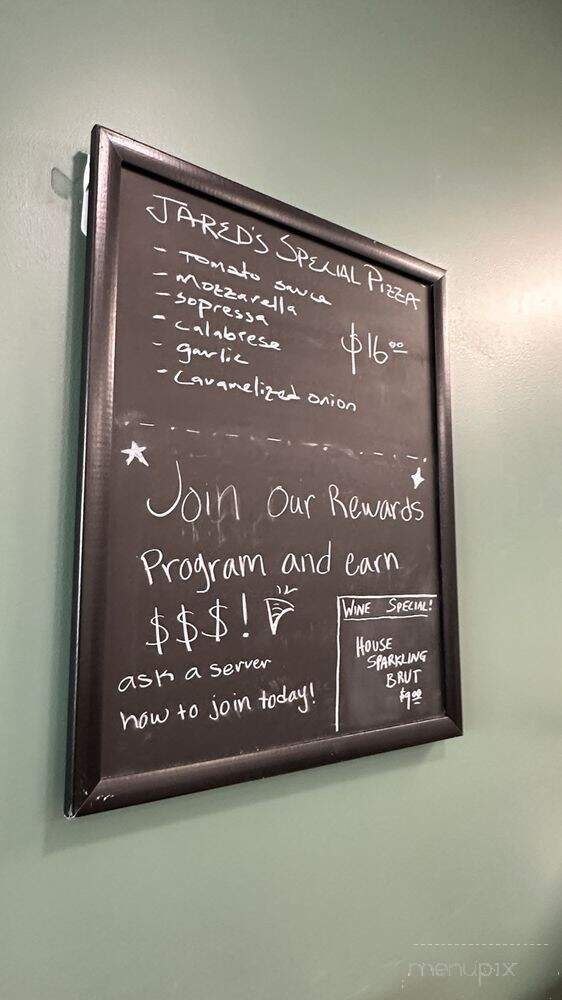 JARED'S SPECIAL PIZZA
- Tomato sauce
- mozzarella
- sopressa
- calabrese
- garlic
- caramelized onion
$16.00
Join our Rewards
Program and earn
$$$!
ask a server
how to join today!
WINE SPECIAL!
HOUSE
SPARKLING
BRUT
$9.00
menupix